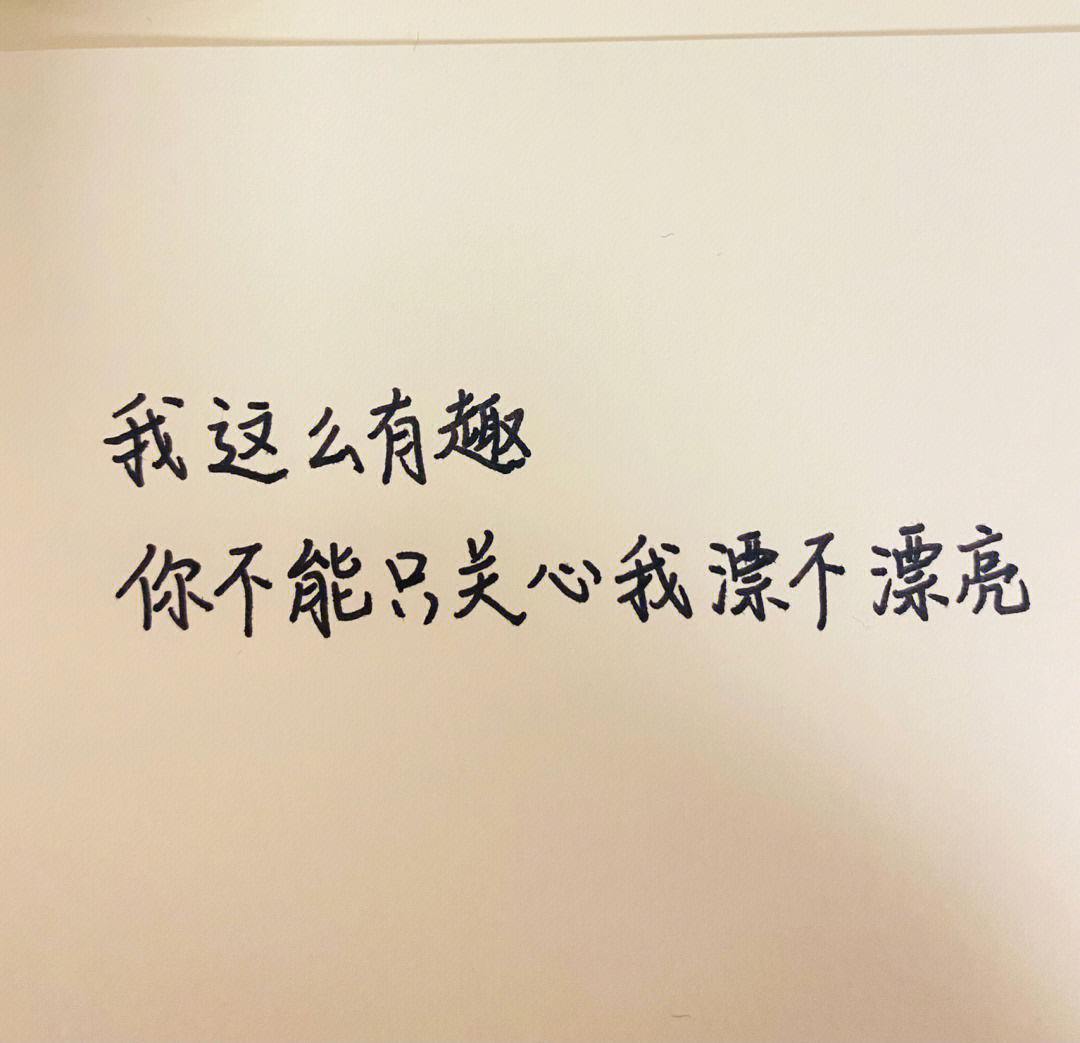 我这么有趣
你不能只关心我漂不漂亮